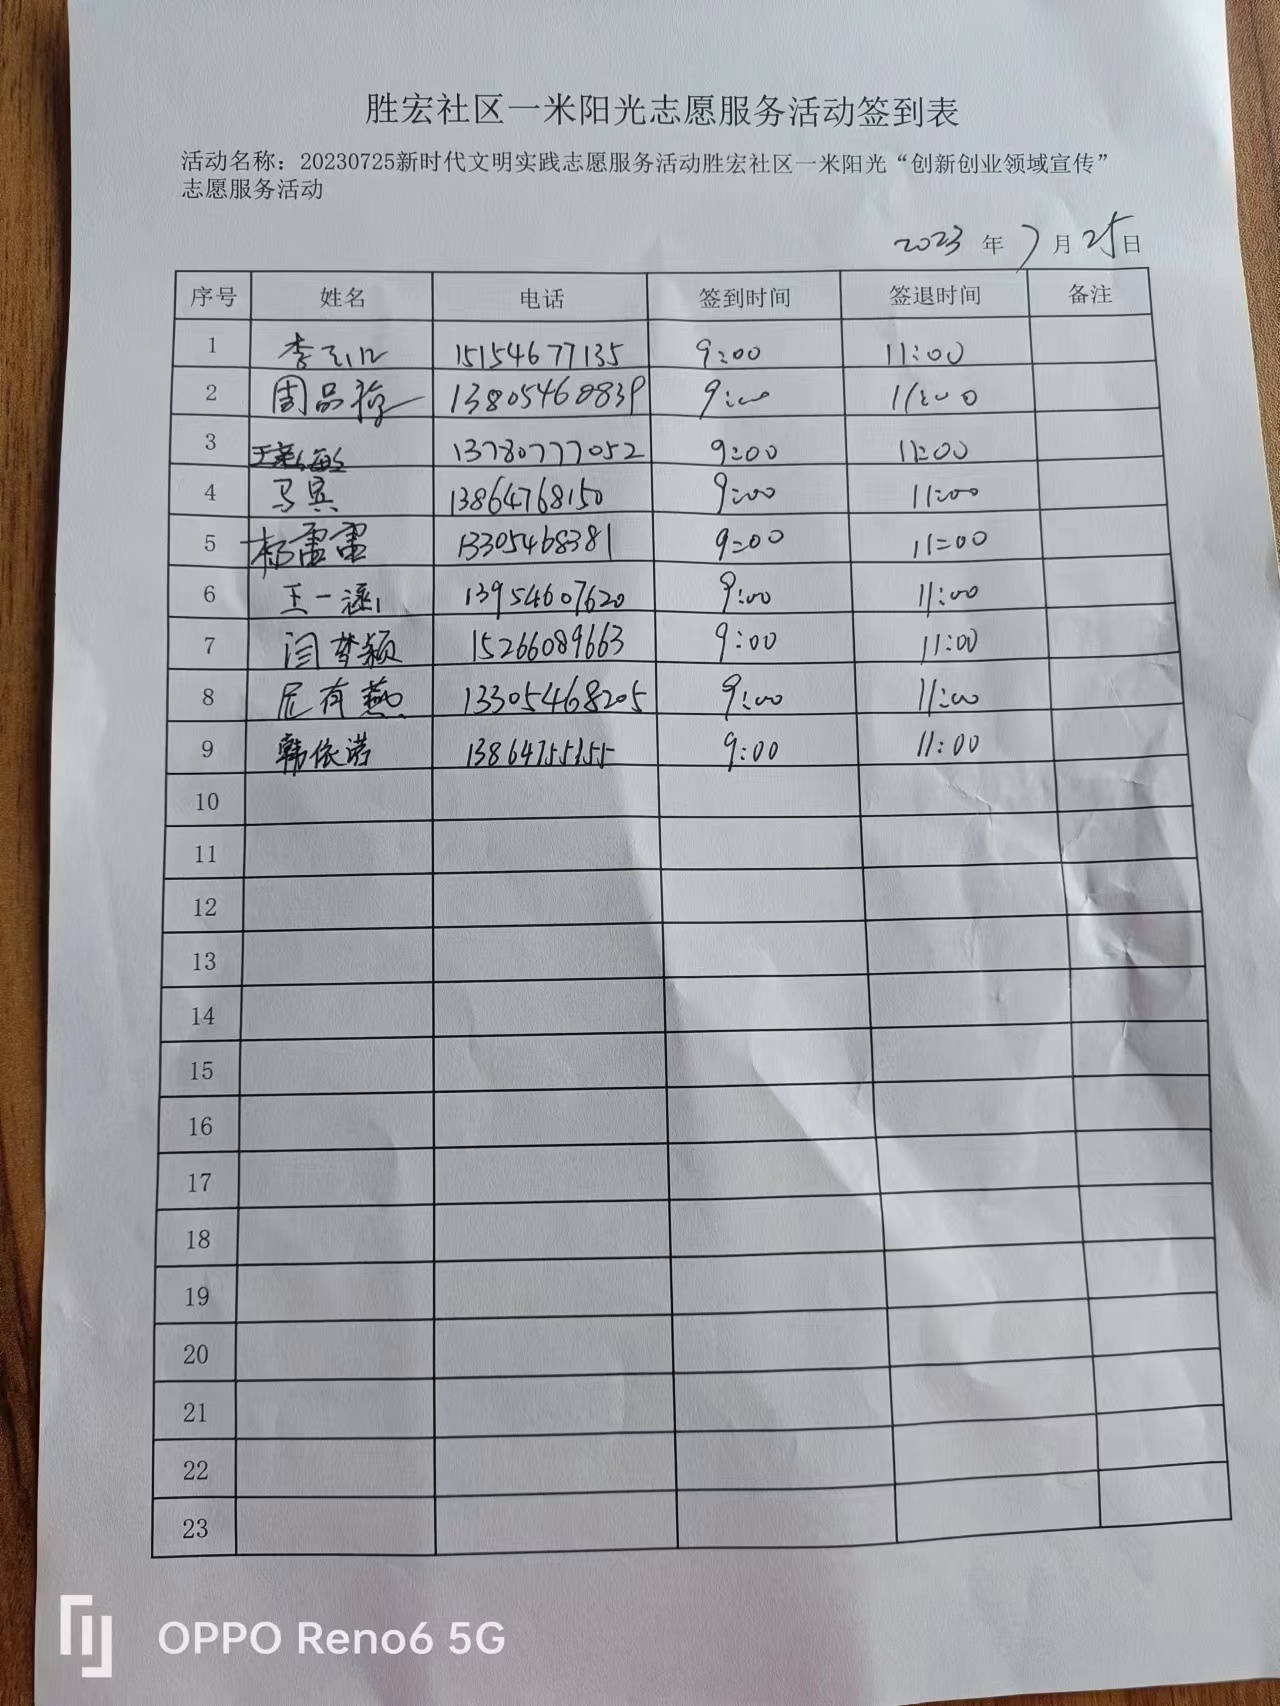 胜宏社区一米阳光志愿服务活动签到表
活动名称：20230725新时代文明实践志愿服务活动胜宏社区一米阳光“创新创业领域宣传”
志愿服务活动
2023 年 7 月 25 日
序号 姓名 电话 签到时间 签退时间 备注
1 李 15154677135 9:00 11:00
2 周品 13805468839 9:00 11:00
3 王 敏 13780777052 9:00 11:00
4 马宾 13864768150 9:00 11:00
5 杨雷雷 13305468381 9:00 11:00
6 王一涵 13954607620 9:00 11:00
7 闫梦颖 15266089663 9:00 11:00
8 尼有燕 13305468205 9:00 11:00
9 韩依诺 13864755155 9:00 11:00
10
11
12
13
14
15
16
17
18
19
20
21
22
23
OPPO Reno6 5G